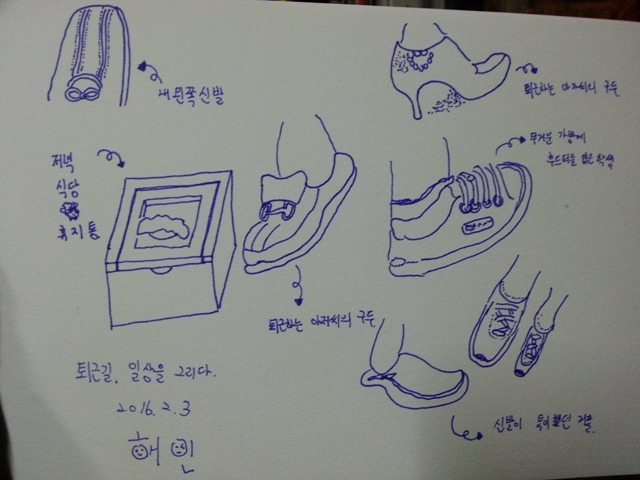 내 왼쪽 신발
퇴근하는 아저씨의 구두
무거운 가방에
후드티를 입은 학생
저녁
식당
휴지통
퇴근하는 아저씨의 구두
신발이 특이했던 커플.
퇴근길, 일상을 그리다.
2016. 2. 3
해 민